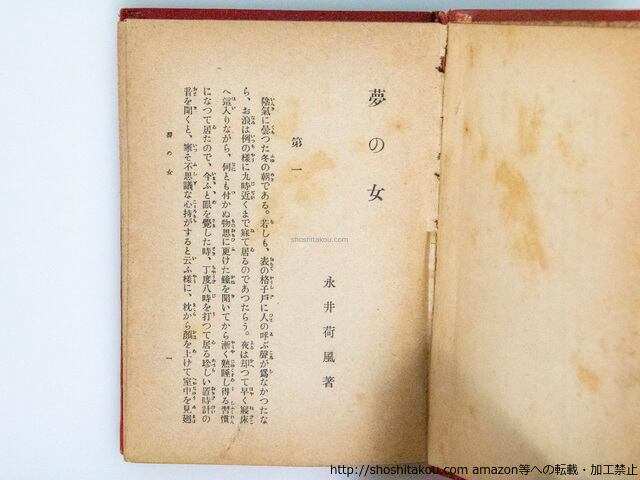 夢の女
永井荷風著
第一
陰氣に曇つた冬の朝である。若しも、表の格子戸に人の呼ぶ聲が爲なかつたな
ら、お浪は例の樣に九時近くまで寐て居るのであつたらう。夜は却つて早く寢床
へ這入りながら、何とも付かぬ物思に更けた鐘を聞いてから漸く熟睡し得る習慣
になつて居たので、今ふと眼を覺した時、丁度八時を打つて居る珍しい置時計の
音を聞くと、寧そ不思議な心持がすると云ふ樣に、枕から顏を上げて室中を見廻
夢の女
一
shoshitakou.com
http://shoshitakou.com amazon等への転載・加工禁止